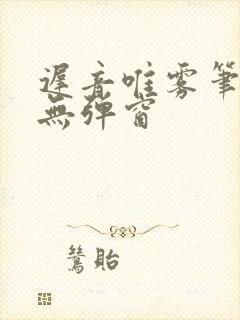 遲音唯雾筆
無弹窗
鶯貽